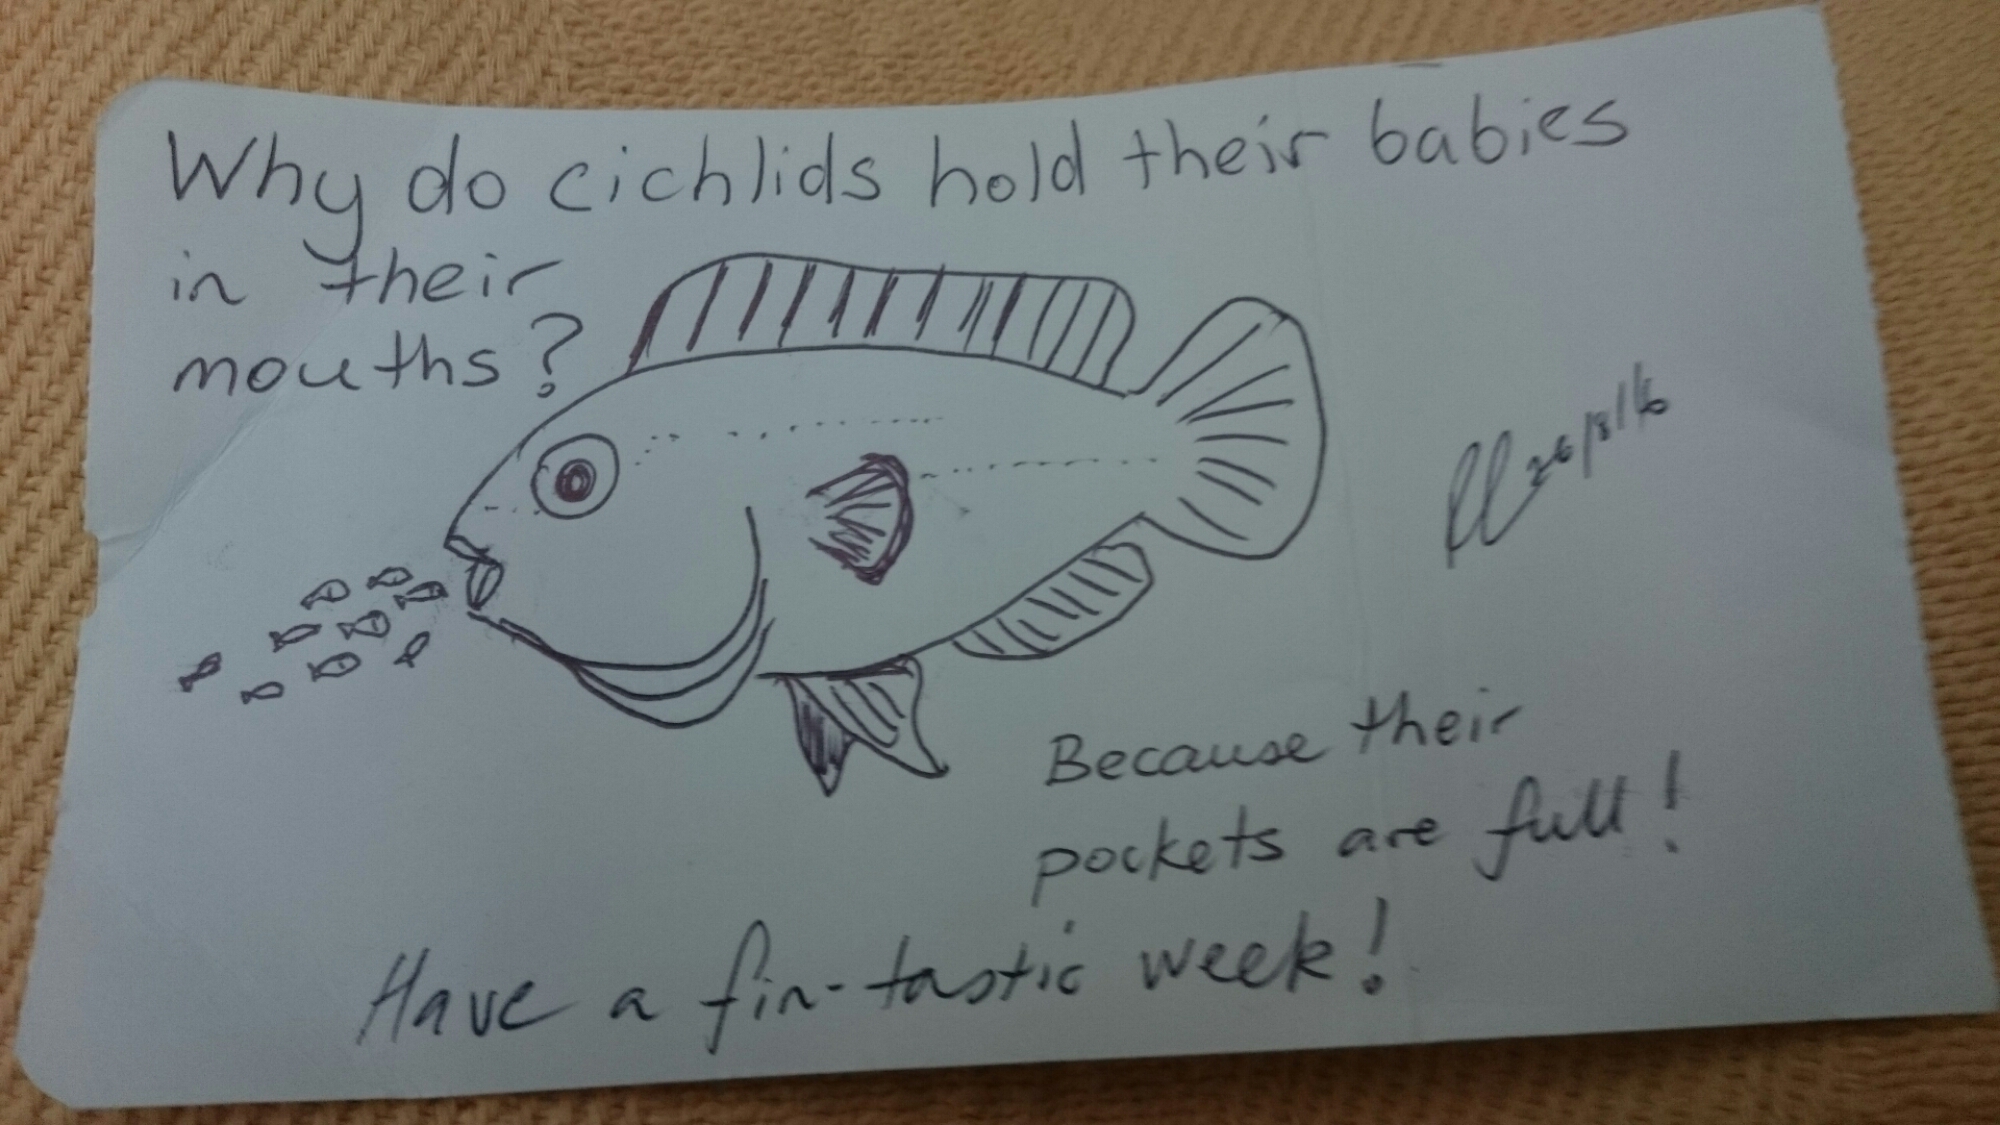 Why do cichlids hold their babies
in their
mouths?
26/8/16
Because their
pockets are full!
Have a fin-tastic week!